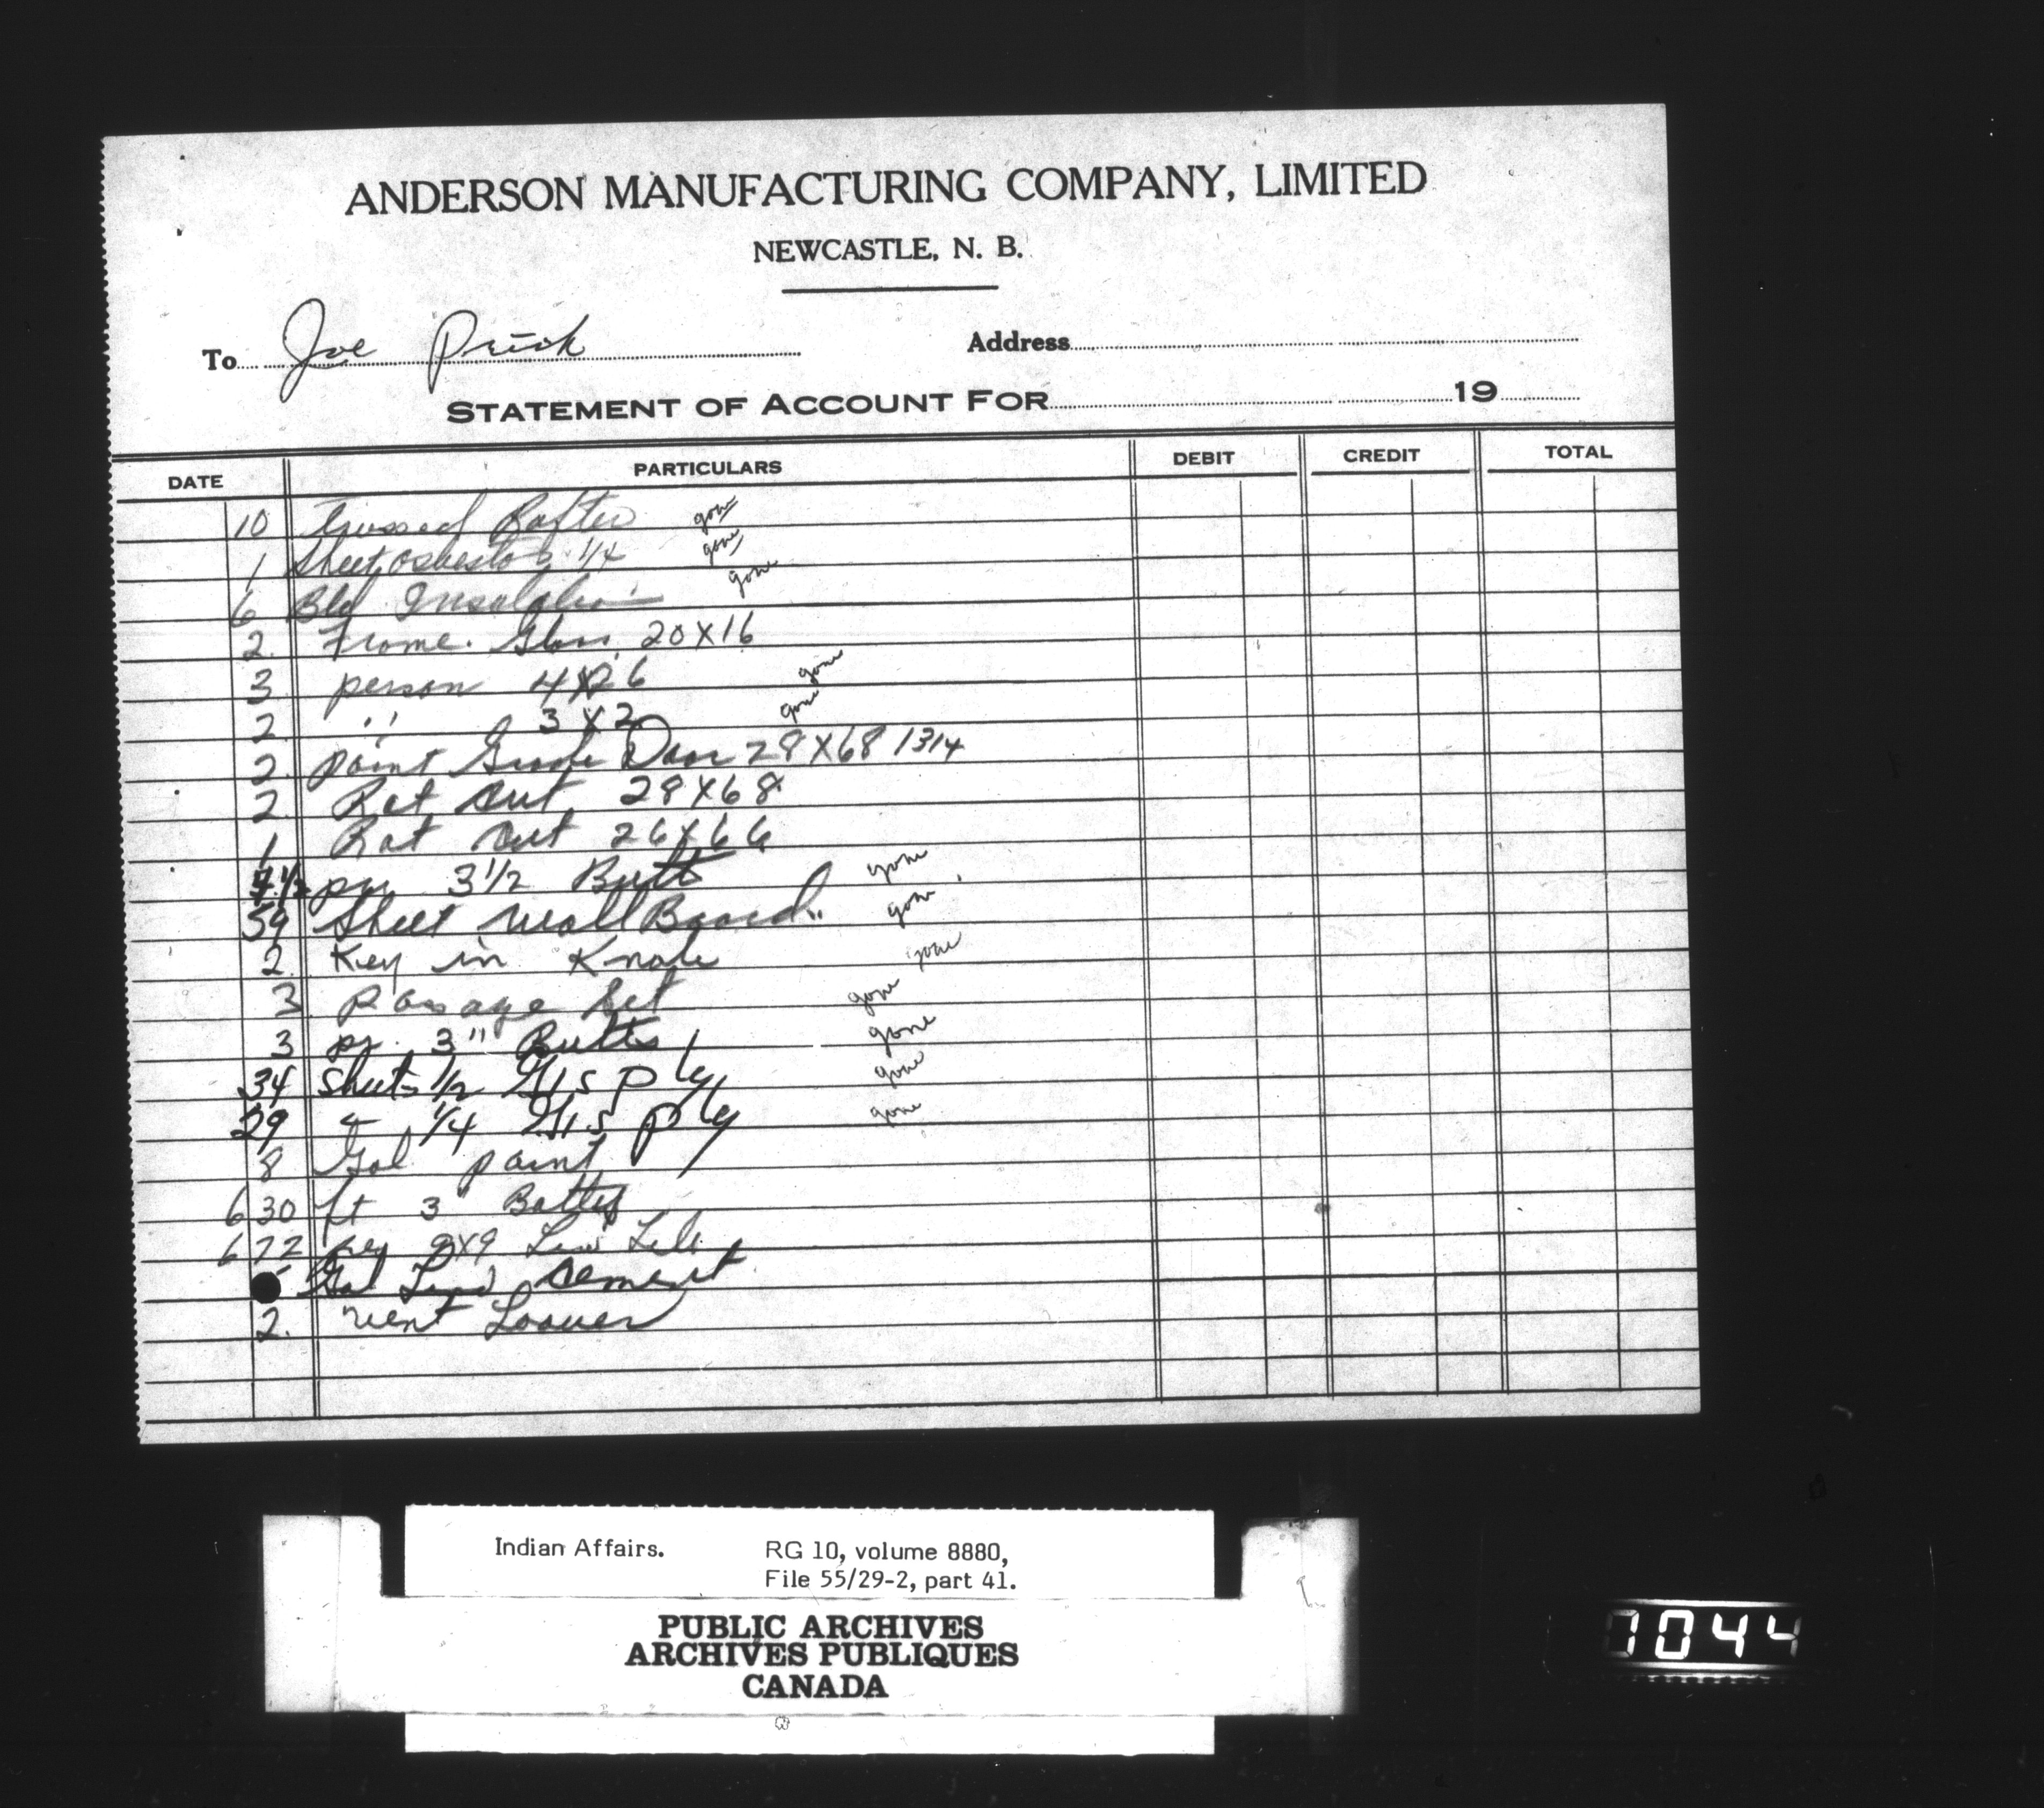 ANDERSON MANUFACTURING COMPANY, LIMITED
NEWCASTLE, N. B.
To Joe Address
STATEMENT OF ACCOUNT FOR 19
DATE PARTICULARS DEBIT CREDIT TOTAL
10 Trussed Rafter gone
1 Sheet asbestos 1/4 gone
6 Bld Insulation gone
2. Frame. Glass 20X16
3 person 4X26 gone
2. " 3X2 gone
2. paint Grade Door 28X68 1 3/4
2. Rat Cut 28X68
1 Rat Cut 26X66
1/2 pr 3 1/2 Butt gone
59 Sheet Wall Board gone
2. Key in Knob gone
3 Passage Set gone
3 pr. 3" Butts gone
34 Sheets 1/2 G1S ply gone
29 " 1/4 G1S ply gone
8 Gal paint
630 ft 3" Batts
672 9X9 Lino Tile
Gal Lino Cement
2. vent Loouer
Indian Affairs. RG 10, volume 8880,
File 55/29-2, part 41.
PUBLIC ARCHIVES
ARCHIVES PUBLIQUES
CANADA
1044